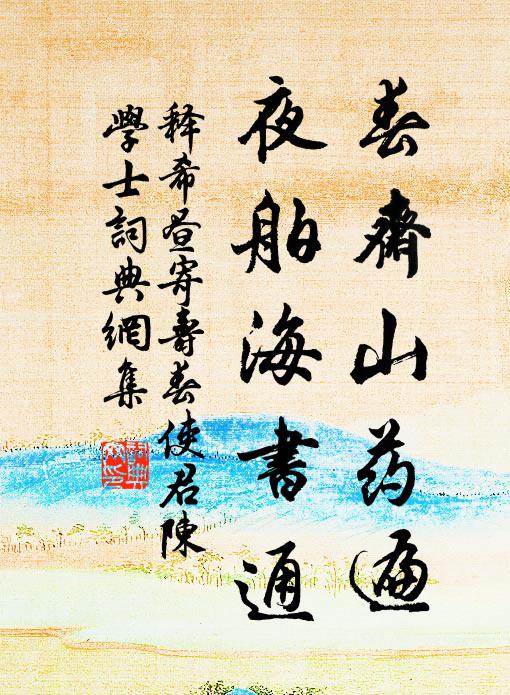 春齋山药遍
夜舶海書通
释希昼寄壽春使君陳
學士詞典網集